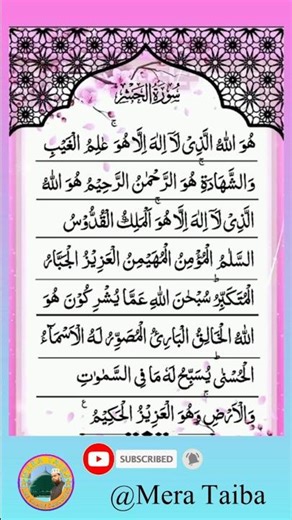 سُوْرَةُ الْحَشْرِ
هُوَ اللّٰهُ الَّذِیْ لَاۤ اِلٰهَ اِلَّا هُوَ ۚ عٰلِمُ الْغَیْبِ
وَالشَّهَادَةِ ۚ هُوَ الرَّحْمٰنُ الرَّحِیْمُ هُوَ اللّٰهُ
الَّذِیْ لَاۤ اِلٰهَ اِلَّا هُوَ ۚ اَلْمَلِكُ الْقُدُّوْسُ
السَّلٰمُ الْمُؤْمِنُ الْمُهَیْمِنُ الْعَزِیْزُ الْجَبَّارُ
الْمُتَكَبِّرُ ؕ سُبْحٰنَ اللّٰهِ عَمَّا یُشْرِكُوْنَ هُوَ
اللّٰهُ الْخَالِقُ الْبَارِئُ الْمُصَوِّرُ لَهُ الْاَسْمَآءُ
الْحُسْنٰی ؕ یُسَبِّحُ لَهٗ مَا فِی السَّمٰوٰتِ
وَالْاَرْضِ ۚ وَهُوَ الْعَزِیْزُ الْحَكِیْمُ
SUBSCRIBED
@Mera Taiba